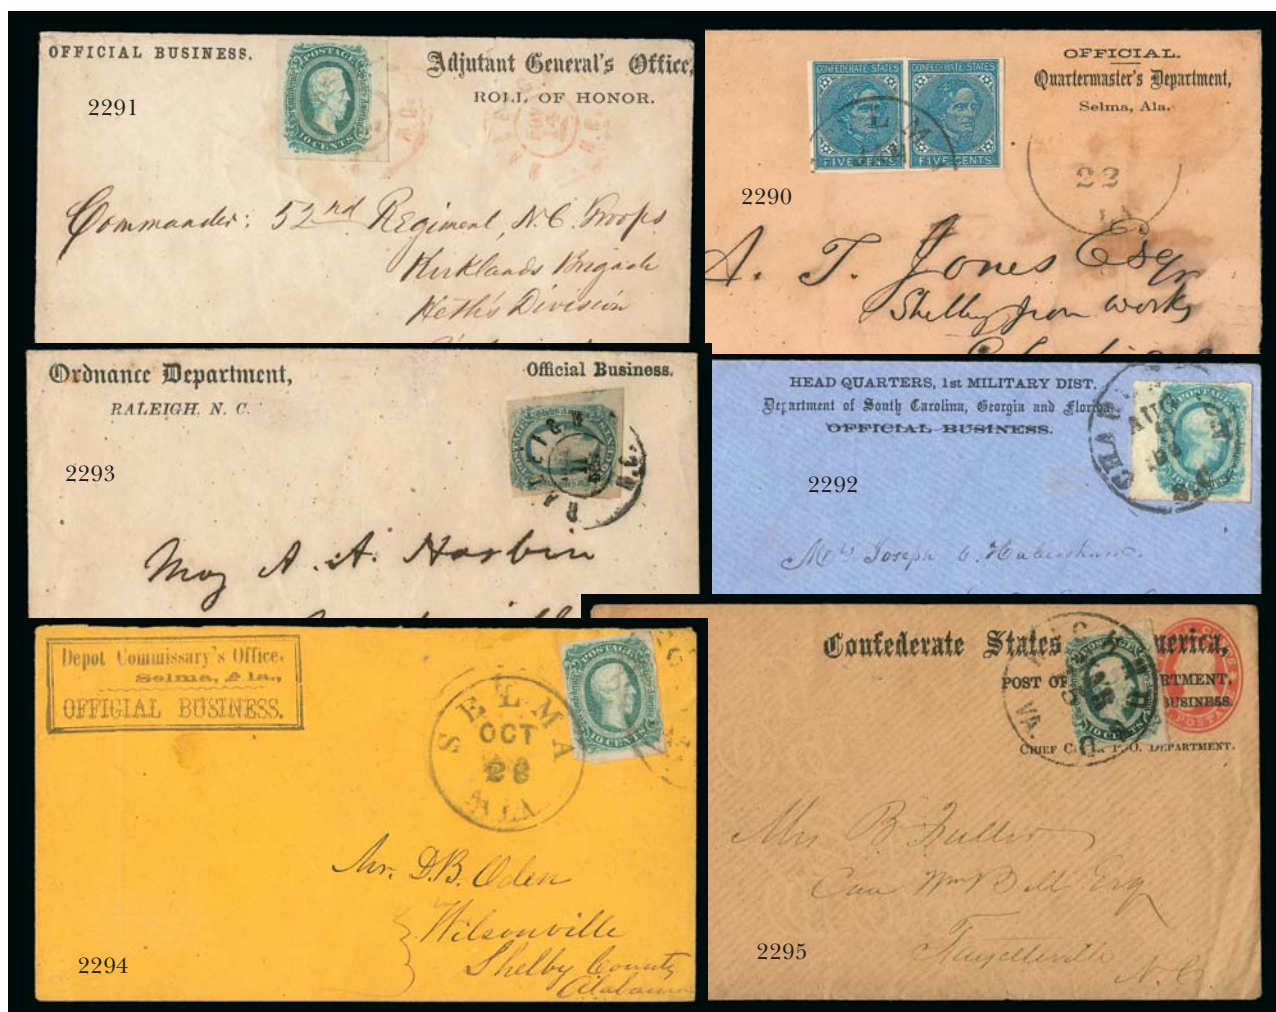 OFFICIAL BUSINESS.
Adjutant General's Office,
ROLL OF HONOR.
2291
POSTAGE
10 CENTS
N.C.
14
N.C.
Commander: 52nd Regiment, N.C. Troops
Kirklands Brigade
Heth's Division
OFFICIAL.
Quartermaster's Department,
Selma, Ala.
CONFEDERATE STATES
CONFEDERATE STATES
FIVE CENTS
FIVE CENTS
22
2290
A. T. Jones Esqr
Shelby Iron Works
Ordnance Department,
RALEIGH, N. C.
Official Business.
2293
RALEIGH
N.C.
Maj A. A. Harbin
HEAD QUARTERS, 1st MILITARY DIST.
Department of South Carolina, Georgia and Florida
OFFICIAL BUSINESS.
2292
AUG
S.C.
Mrs Joseph C. Habersham.
Depot Commissary's Office.
Selma, Ala.,
OFFICIAL BUSINESS.
SELMA
OCT
28
ALA
POSTAGE
10 CENTS
Mr. D.B. Oden
Wilsonville
Shelby County
Alabama
2294
Confederate States merica,
POST OF RTMENT.
BUSINESS.
CHIEF C P. O. DEPARTMENT.
RICHMOND
VA.
10 CENTS
Mrs B. Fuller
Care Wm B Esq
Fayetteville
N.C.
2295